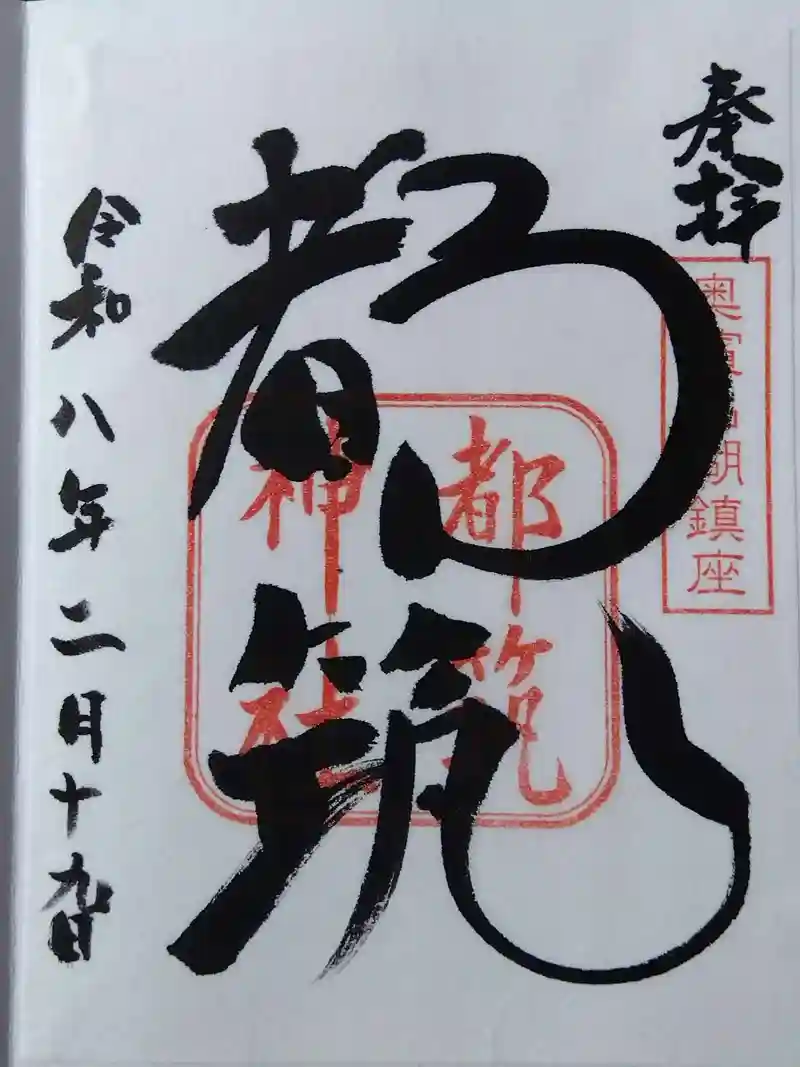 奉拝
奥濱名湖鎮座
都筑
都筑
神社
令和八年二月十九日